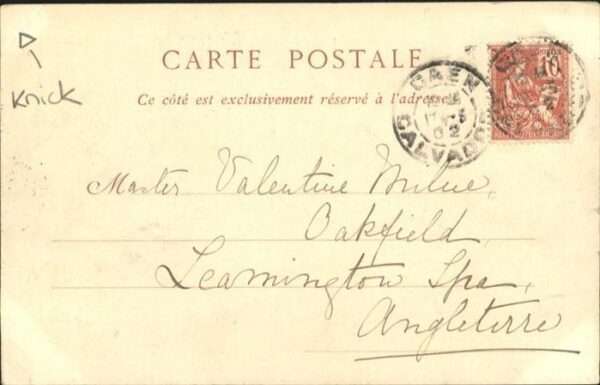 CARTE POSTALE
Ce côté est exclusivement réservé à l'adresse
Knick
CAEN
02
CALVADOS
10
Master Valentine Milne,
Oakfield,
Leamington Spa,
Angleterre